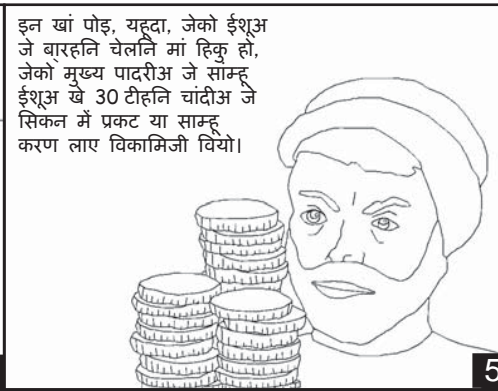 इन खां पोइ, यहूदा, जेको ईशूअ
जे बा॒रहनि चेलनि मां हिकु हो,
जेको मुख्य पादरीअ जे साम्हू
ईशूअ खे 30 टीहनि चांदीअ जे
सिकन में प्रकट या साम्हू
करण लाए विकामिजी वियो।
5